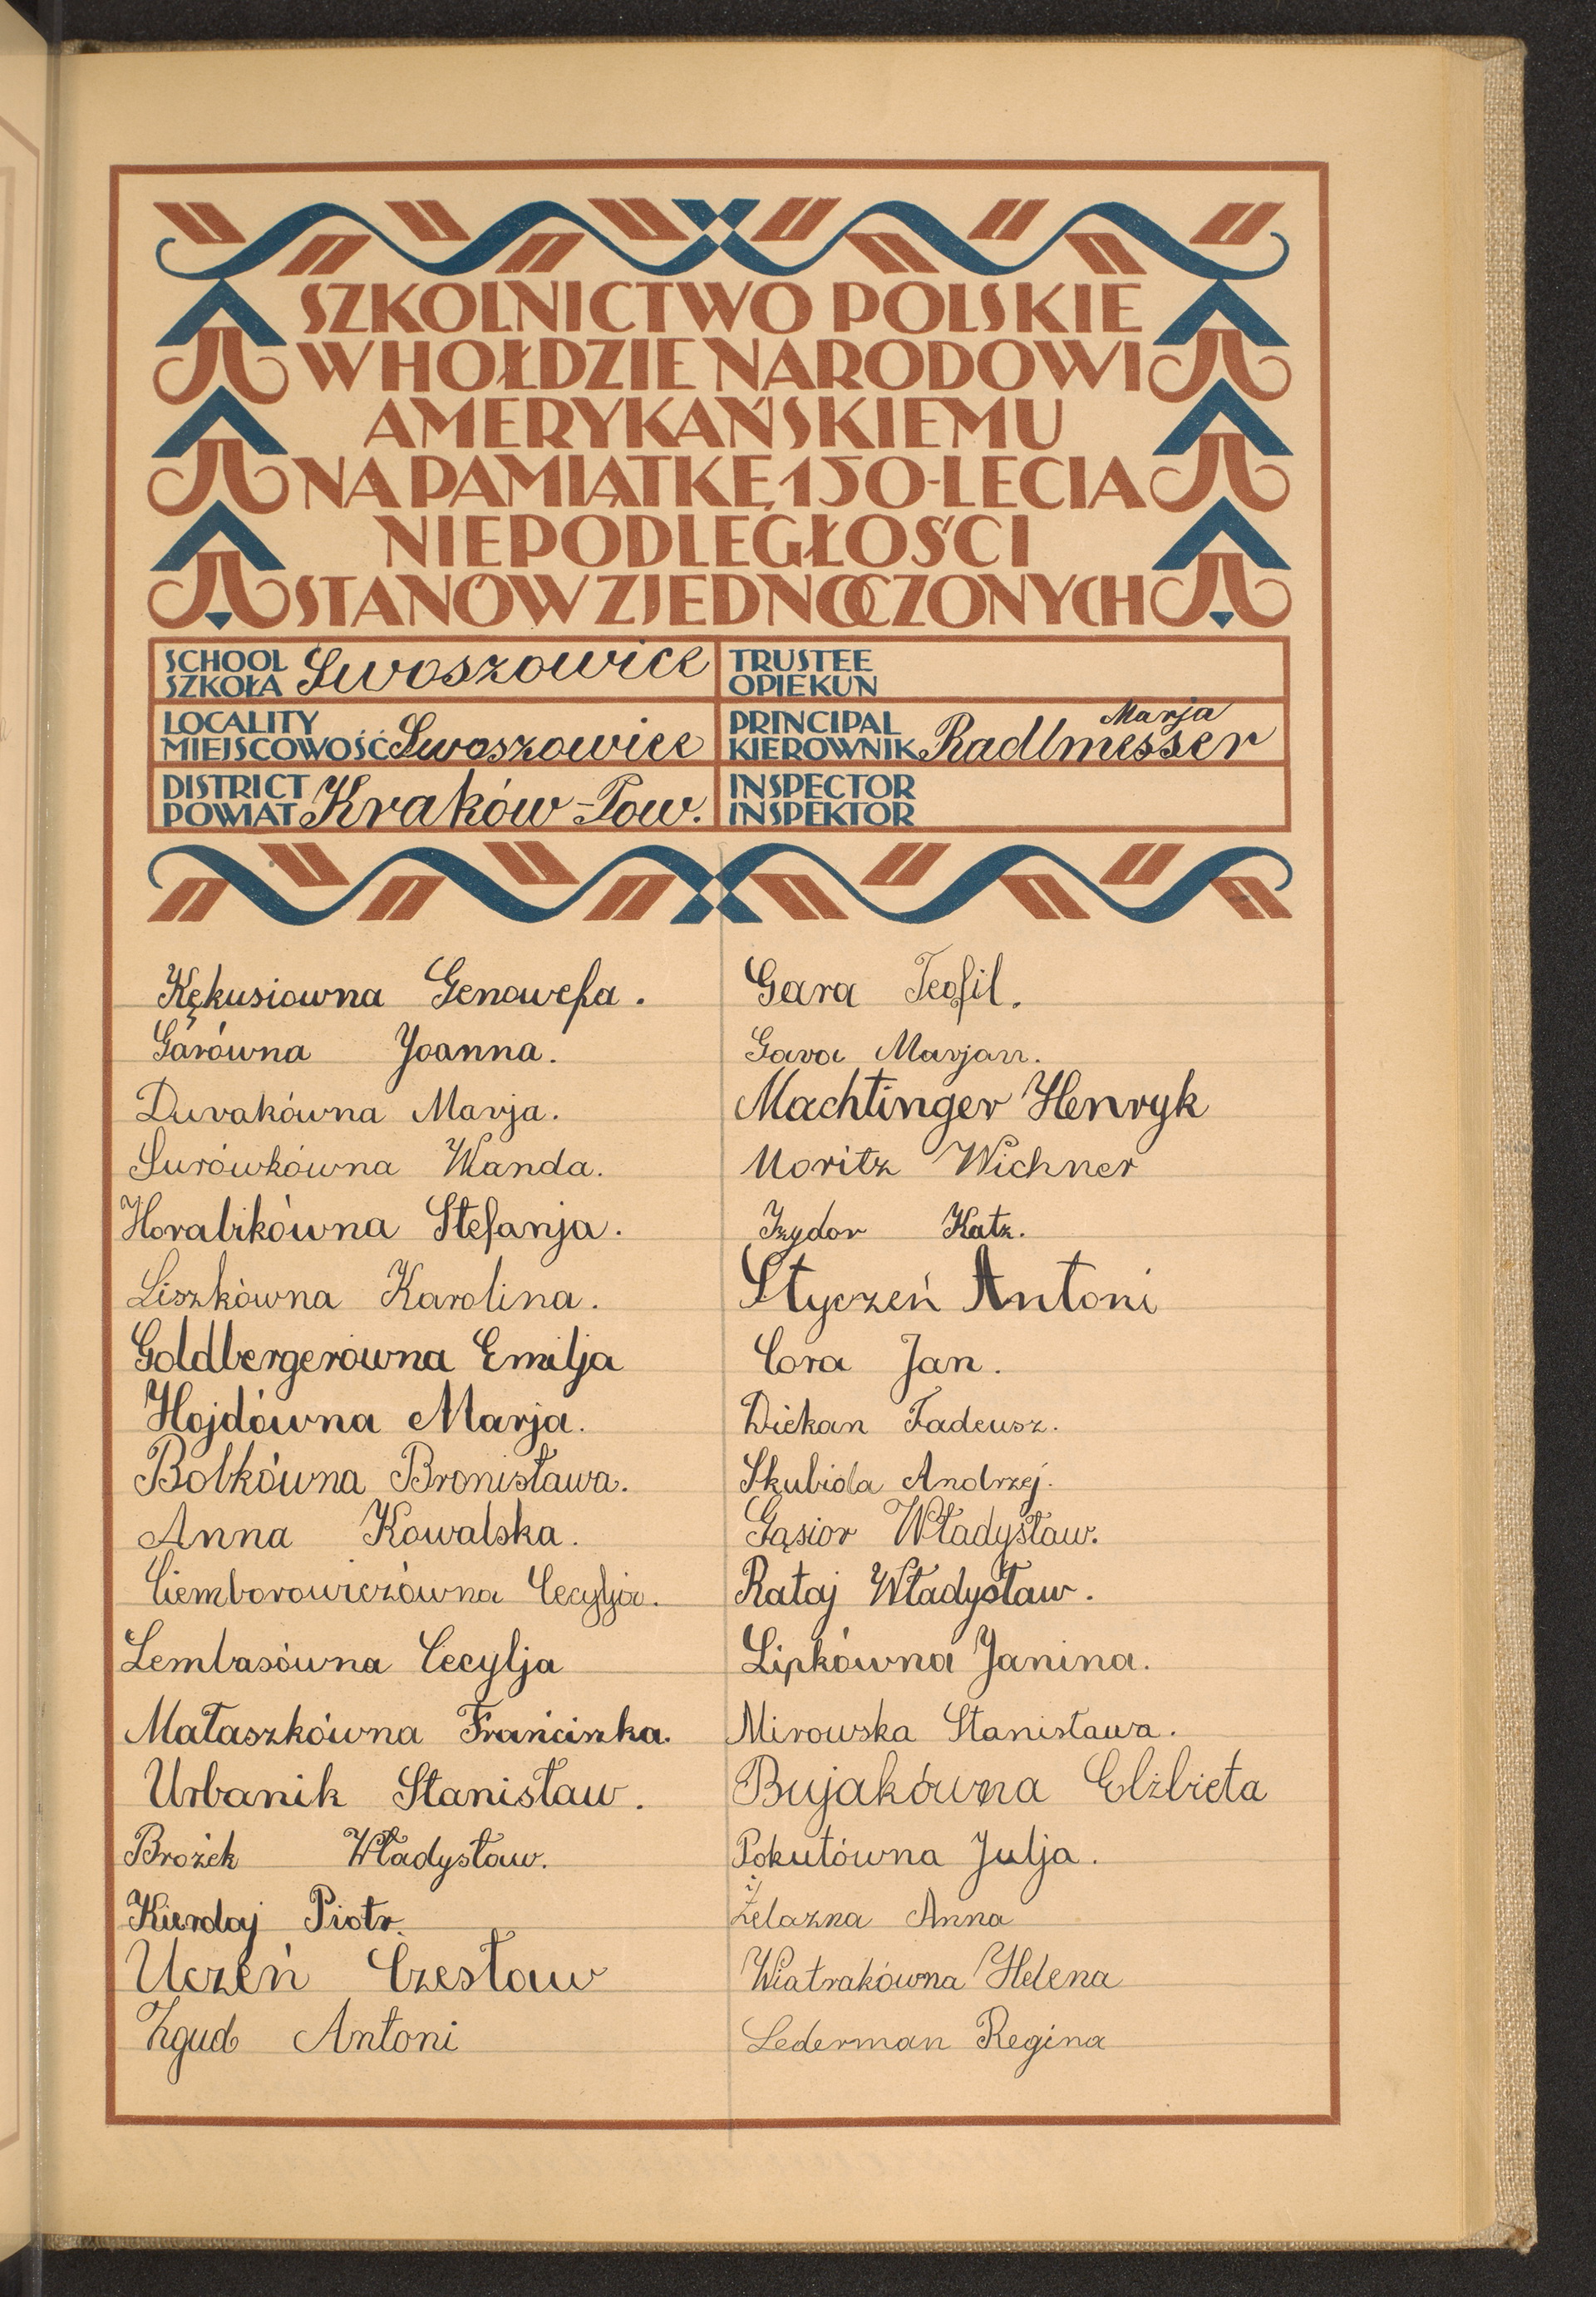 SZKOLNICTWO POLSKIE
W HOŁDZIE NARODOWI
AMERYKAŃSKIEMU
NA PAMIĄTKĘ 150-LECIA
NIEPODLEGŁOŚCI
STANÓW ZJEDNOCZONYCH
SCHOOL
SZKOŁA Swoszowice
TRUSTEE
OPIEKUN
LOCALITY
MIEJSCOWOŚĆ Swoszowice
PRINCIPAL
KIEROWNIK Marja Radlmesser
DISTRICT
POWIAT Kraków-Pow.
INSPECTOR
INSPEKTOR
Kękusiowna Genowefa.
Garówna Joanna.
Duvakówna Marja.
Surówkówna Wanda.
Horabikówna Stefanja.
Liszkówna Karolina.
Goldbergerówna Emilja
Hojdówna Marja.
Bolkówna Bronisława.
Anna Kowalska.
Ciemborowiczówna Cecylja.
Lembasówna Cecylja
Mataszkówna Franciszka.
Urbanik Stanisław.
Brożek Władysław.
Kierdaj Piotr.
Uczeń Czesław
Zgud Antoni
Gara Teofil.
Gara Marjan.
Machtinger Henryk
Moritz Wichner
Izydor Katz.
Styczeń Antoni
Cora Jan.
Diekan Tadeusz.
Skubida Andrzej.
Gąsior Władysław.
Rataj Władysław.
Lipkówna Janina.
Mirowska Stanisława.
Bujakówna Elżbieta
Pokutówna Julja.
Żelazna Anna
Wiatrakówna Helena
Lederman Regina